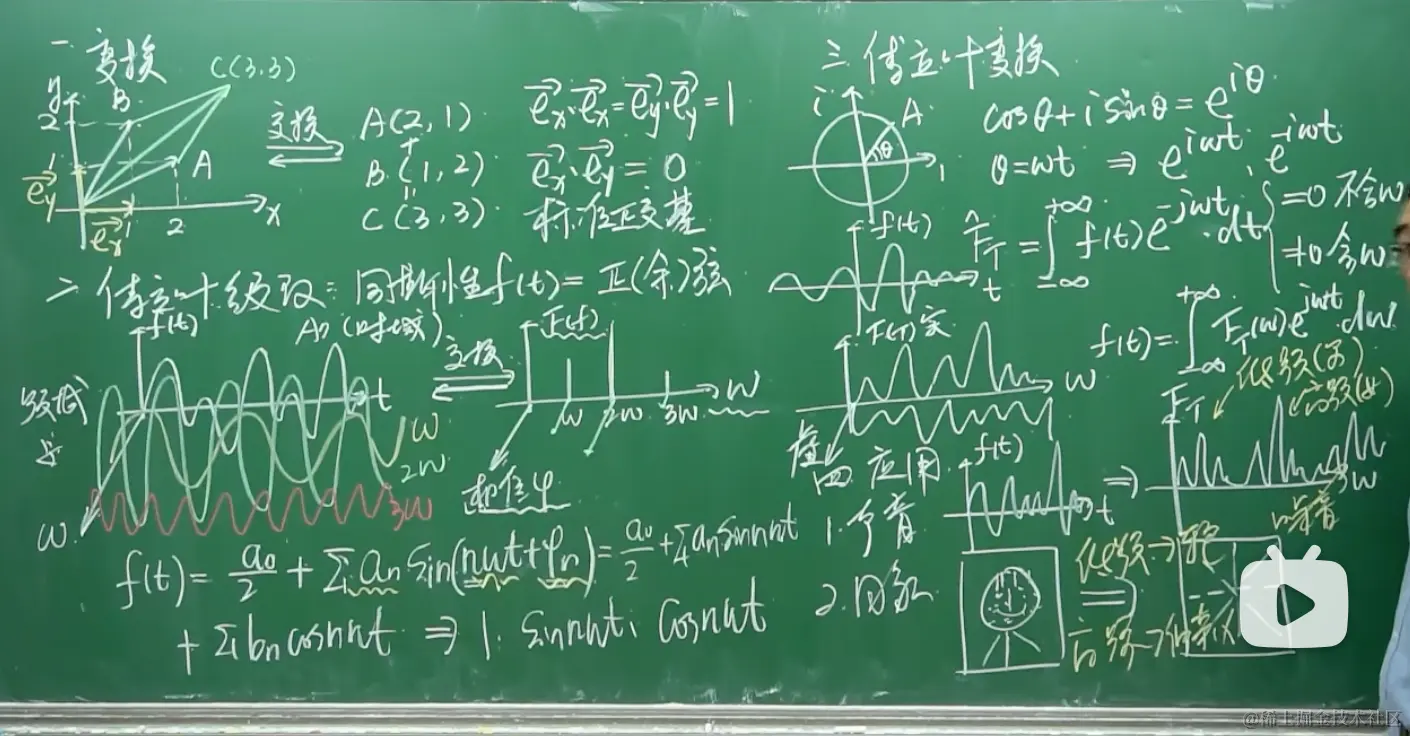 一. 变换
C(3,3)
y
B
2
1
A
1
2
x
e⃗y
e⃗x
变换
A(2,1)
+
B(1,2)
C(3,3)
e⃗x·e⃗x=e⃗y·e⃗y=1
e⃗x·e⃗y=0
标准正交基
二. 傅立叶级数: 周期性f(t)=正(余)弦
f(t)
An(时域)
t
ω
2ω
3ω
ω
变换
F(f)
ω
2ω
3ω
ω
相位φ
f(t)=a₀/2+Σan sin(nωt+φn)=a₀/2+Σan sinnωt
+Σbn cosnωt ⇒ 1. sinnωt、cosnωt
三. 傅立叶变换
i
A
θ
1
cosθ+isinθ=e^{iθ}
θ=ωt ⇒ e^{iωt}、e^{-iωt}
f(t)
t
F_T=∫_{-∞}^{+∞} f(t)e^{-jωt}·dt
=0 不含ω
≠0 含ω
F(T)实
ω
虚
f(t)=∫_{-∞}^{+∞} F_T(ω)e^{jωt}·dω
四. 应用
1. 声音
f(t)
t
⇒
F_T
低频(男)
高频(女)
ω
噪音
2. 图象
低频→轮
⇒
高频→细节
@稀土掘金技术社区